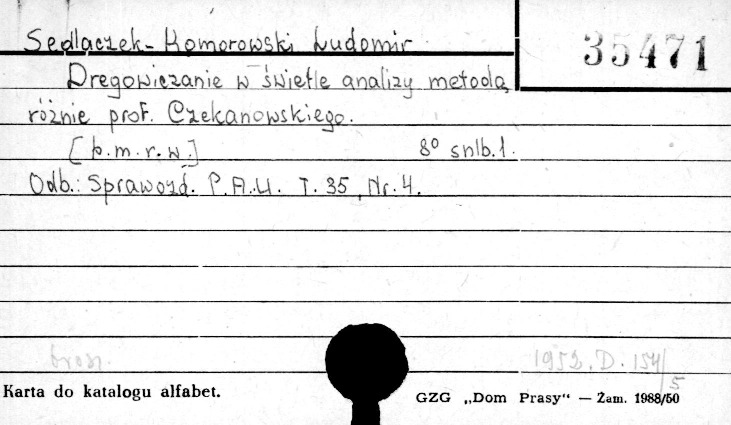 Sedlaczek-Komorowski Ludomir
35471
Dregowiczanie w świetle analizy metodą
różnic prof. Czekanowskiego.
[b.m.r.w.] 8° snlb.1.
Odb.: Sprawozd. P.A.U. T. 35, Nr. 4.
brosz.
1952. D. 154/5
Karta do katalogu alfabet.
GZG „Dom Prasy“ — Zam. 1988/50